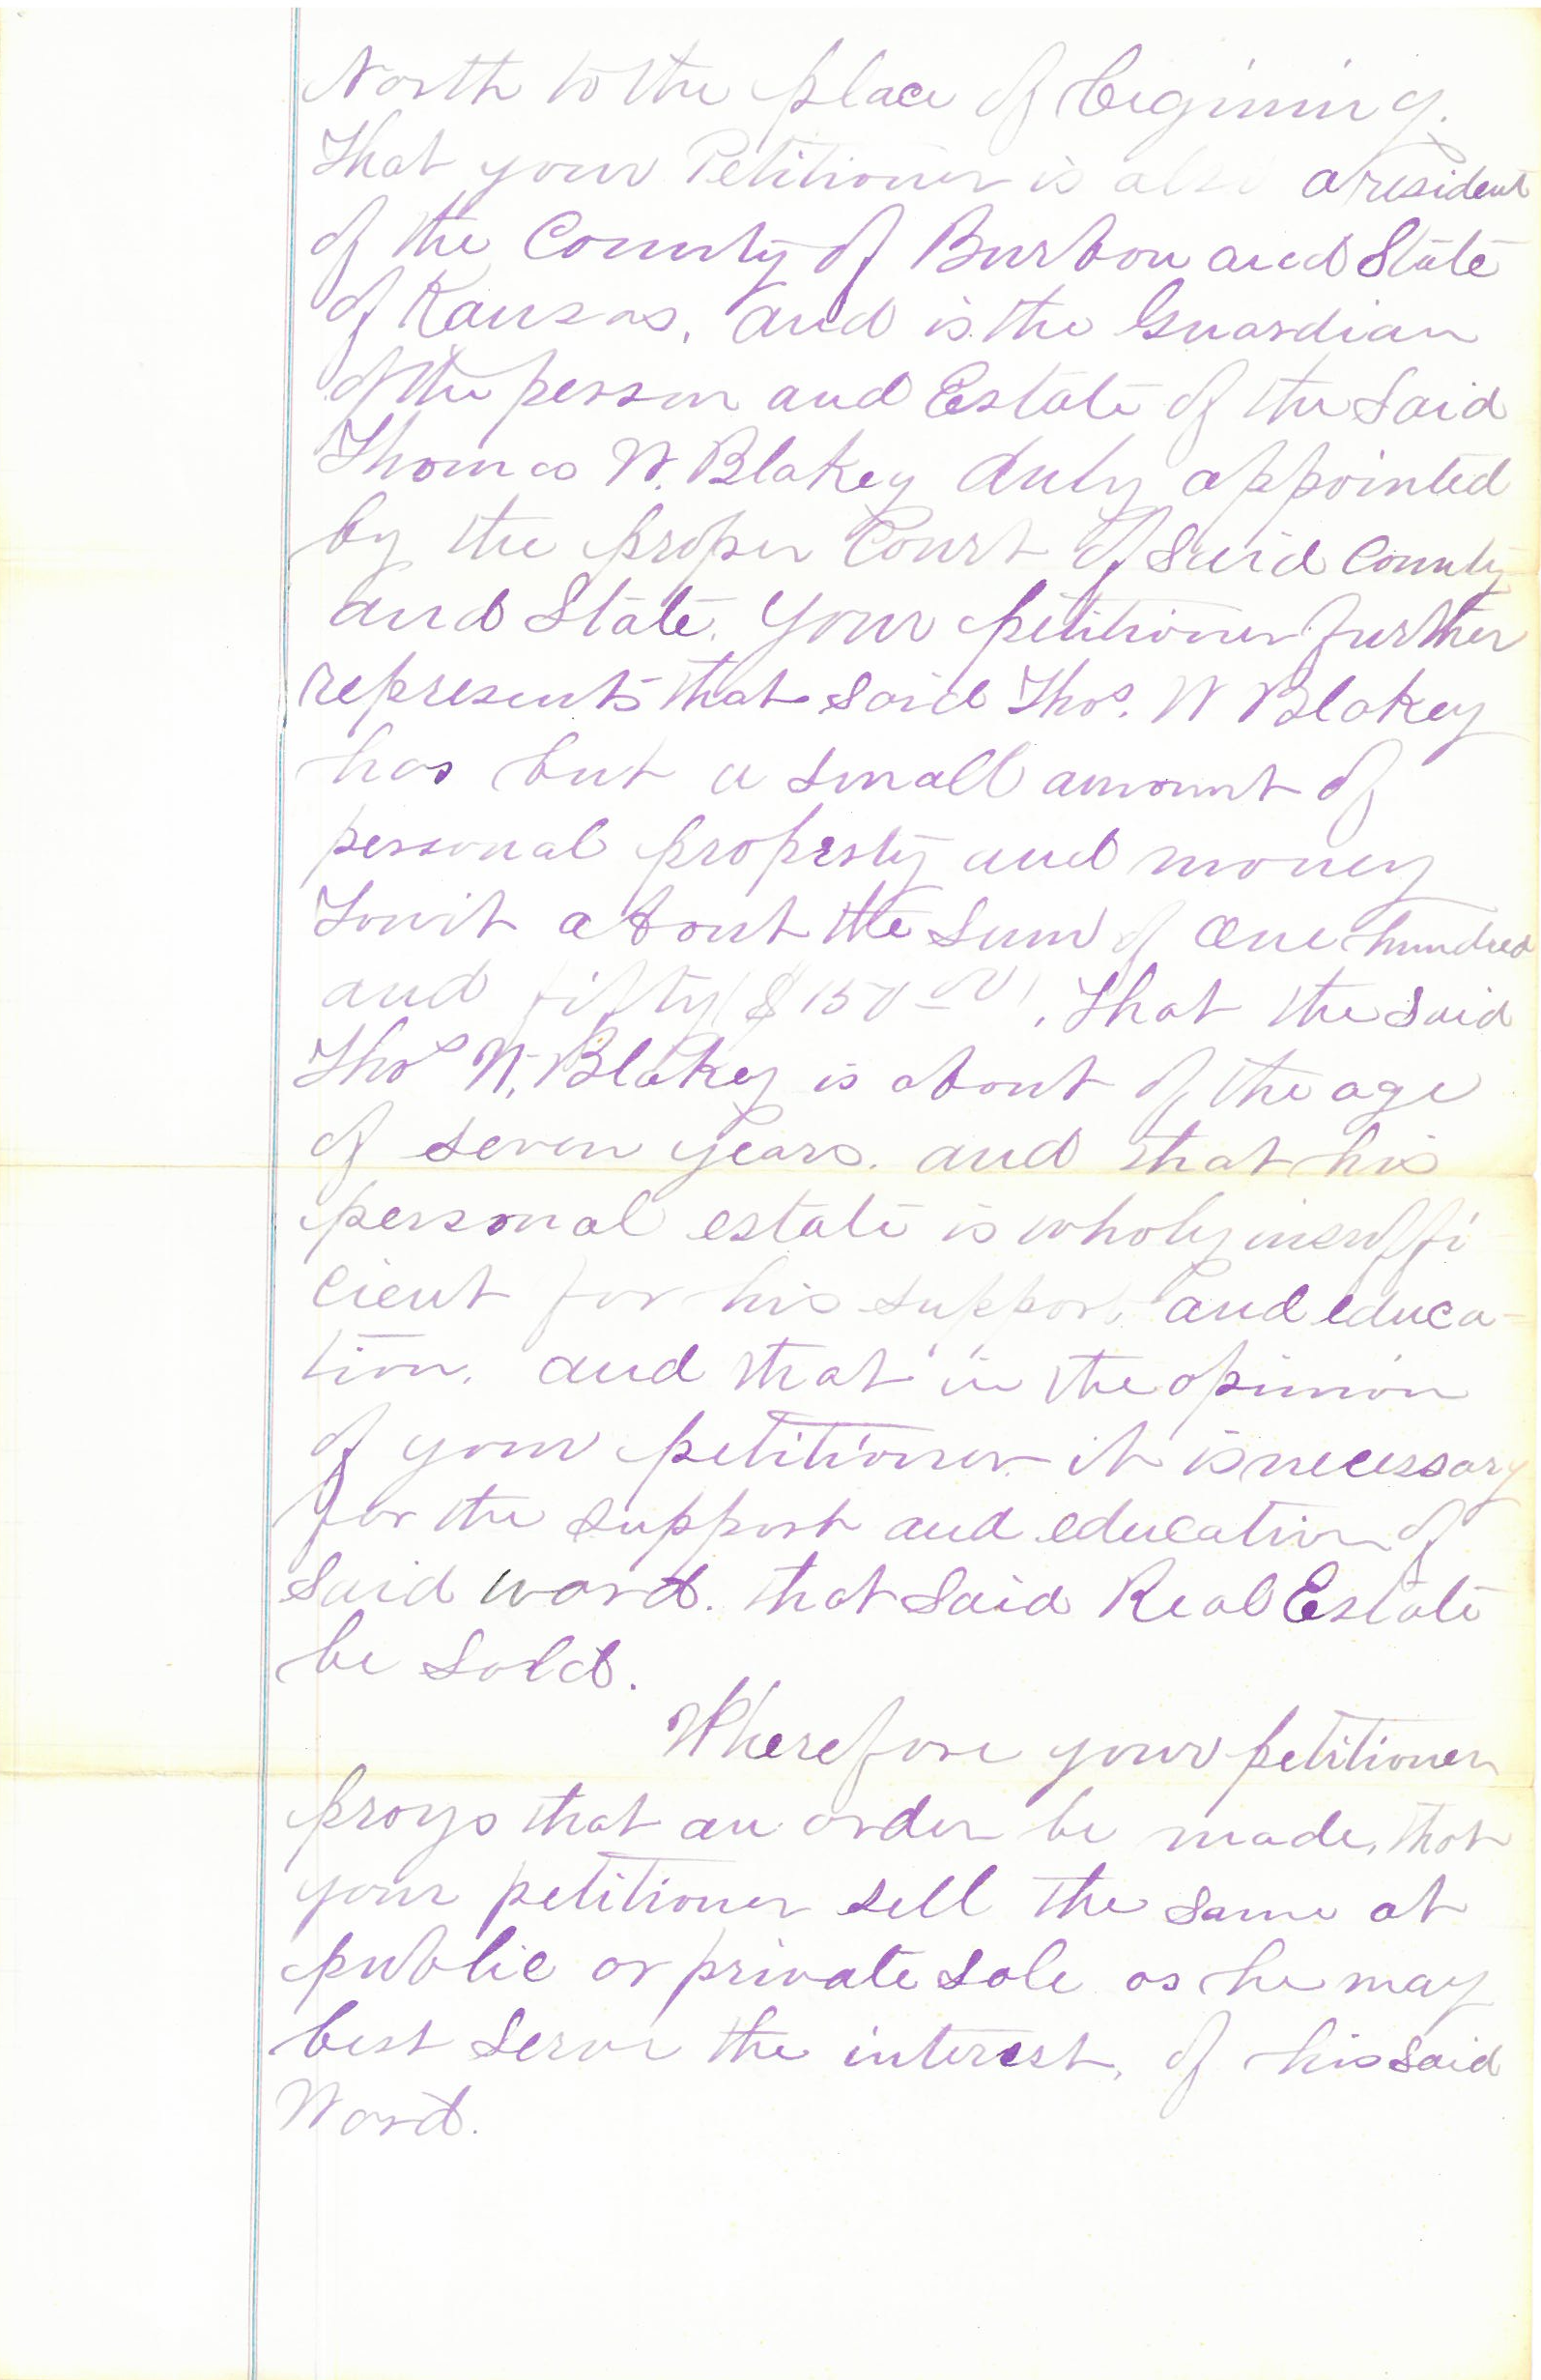 North to the place of begining.
That your Petitioner is also a resident
of the County of Burbon and State
of Kansas, and is the Guardian
of the person and Estate of the Said
Thomas W. Blakey duly appointed
by the proper Court of Said County
and State. Your petitioner further
represents that said Thos. W Blakey
has but a small amount of
personal property and money
Towit about the Sum of One hundred
and fifty ($150 00), That the said
Thos W. Blakey is about of the age
of seven years. and that his
personal estate is wholy insuffi-
cient for his support and educa-
tion. and that in the opinion
of your petitioner it is necessary
for the support and education of
said ward. that said Real Estate
be sold.
Wherefore your petitioner
prays that an order be made, that
your petitioner sell the same at
public or private sale as he may
best serve the interest, of his said
Ward.